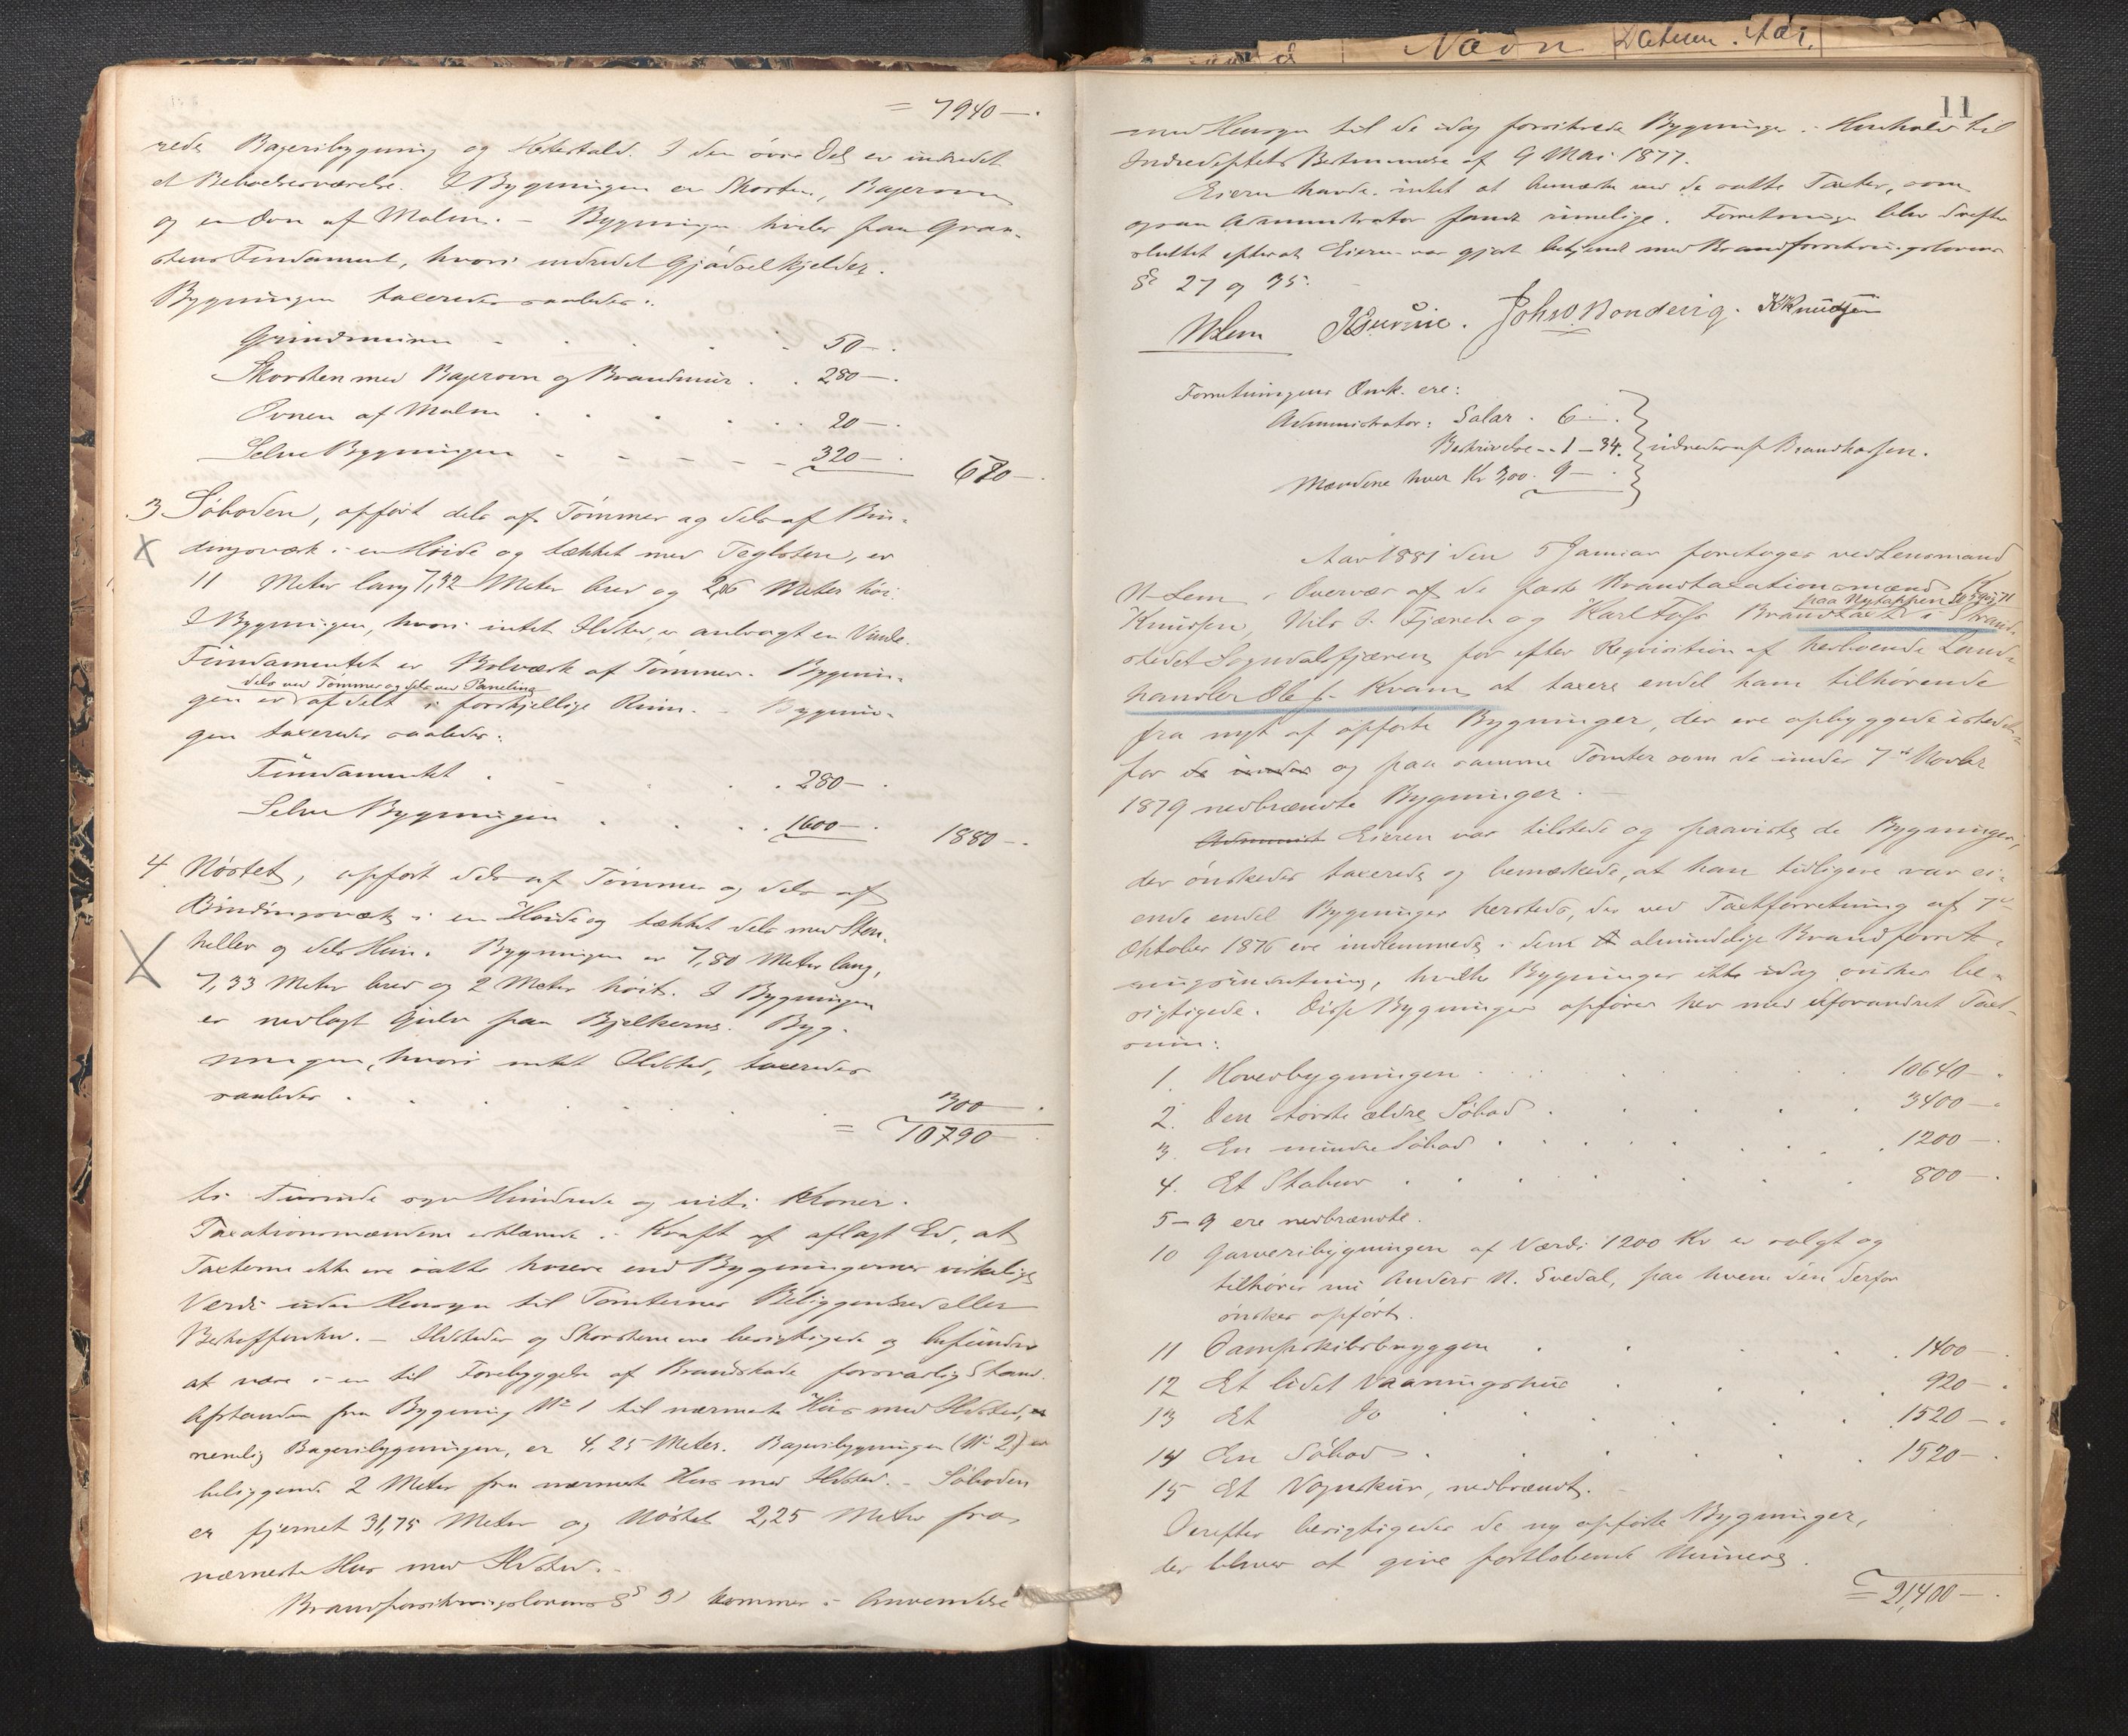 = 7940 — .
rede Bageribygning og Hestestald. I den øvre Del er indredet
et Beboelsesværelse. I Bygningen er Skorsten, Bagerovn
og en Ovn af Malm. — Bygningen hviler paa Graa-
stens Fundament, hvori indredet Gjødselkjelder.
Bygningen taxeredes saaledes:
Grundmuren . . . . 50 — .
Skorsten med Bagerovn og Brandmur . . 280 — .
Ovnen af Malm . . . . 20 — .
Selve Bygningen - - - - - 320 — . 670 — .
3 Søboden, opført dels af Tømmer og dels af Bin-
dingsværk i en Høide og tækket med Taglsten, er
11 Meter lang 7,32 Meter bred og 2,86 Meter høi.
I Bygningen, hvori intet Ildsted, er anbragt en Vinde.
Fundamentet er Bolværk af Tømmer. Bygnin-
dels ved Tømmer og dels ved Paneling
gen er afdelt i forskjellige Rum. — Bygnin-
gen taxeredes saaledes:
Fundamentet . . . 280 — .
Selve Bygningen . . . 1600 — . 1880 — .
4 Nøstet, opført dels af Tømmer og dels af
Bindingsværk i en Høide og tækket dels med Sten-
heller og dels Hun. Bygningen er 7,80 Meter lang,
7,33 Meter bred og 2 Meter høit. I Bygningen
er nedlagt Gulv paa Bjelkerne. Byg-
ningen, hvori intet Ildsted, taxeredes
saaledes . . . . . . . 300 — .
= 10790 — .
ti Tusinde syv Hundrede og niti Kroner.
Taxationsmændene erklærede i Kraft af aflagt Ed, at
Taxterne ikke ere satte høiere end Bygningernes virkelige
Værdi uden Hensyn til Tomternes Beliggenhed eller
Beskaffenhed. — Ildsteder og Skorstene ere besigtigede og befundne
at være i en til Forebyggelse af Brandskade forsvarlig Stand.
Afstanden fra Bygning No 1 til nærmeste Hus med Ildsted,
nemlig Bageribygningen, er 4,25 Meter. Bageribygningen (No 2) er
beliggende 2 Meter fra nærmeste Hus med Ildsted. — Søboden
er fjernet 31,75 Meter og Nøstet 2,25 Meter fra
nærmeste Hus med Ildsted. —
Brandforsikringslovens § 31 kommer i Anvendelse
Navn Datum. Aar.
11
med Hensyn til de idag forsikrede Bygninger i Henhold til
Indredeptets Bestemmelse af 9 Mai 1877.
Eieren havde intet at bemærke ved de satte Taxter, som
ogsaa Administrator fandt rimelige. Forretningen blev derefter
sluttet efterat Eieren var gjort bekjendt med Brandforsikringslovens
§§ 27 og 35.
N Lem Johs O. Nondevig. K Knudsen
Forretningens Omk. ere:
Administrator: Salar . 6 — .
Beskrivelse - - 1 — 34. udredes af Brandkassen.
Mændene hver Kr 3,00. 9 — .
Aar 1881 den 5 Januar foretoges ved Lensmand
N Lem i Overvær af de faste Brandtaxationsmænd K.
paa Nytappen
Knudsen, Nils J. Fjæren og Karl Foss Brandtaxt i Strand-
stedet Sogndalsfjæren for efter Requisition af herboende Land-
handler Ole J. Kvam at taxere endel ham tilhørende
fra nyt af opførte Bygninger, der ere opbyggede istedet-
for de under og paa samme Tomter som de under 7de Novbr
1879 nedbrændte Bygninger. —
Administ Eieren var tilstede og paaviste de Bygninger,
der ønskedes taxerede og bemærkede, at han tidligere var ei-
ende endel Bygninger hersteds, der ved Taxtforretning af 7de
Oktober 1876 ere indlemmede i den almindelige Brandforsik-
ringsindretning, hvilke Bygninger ikke idag ønskes be-
sigtigede. Disse Bygninger opføres her med uforandret Taxt-
sum:
1. Hovedbygningen . . . . 10640 — .
2. Den største ældre Søbod . . . . 3400 — .
3. En mindre Søbod . . . . . 1200 — .
4. Et Stabur . . . . . . 800 — .
5 — 9 ere nedbrændte.
10 Garveribygningen af Værdi 1200 Kr er solgt og
tilhører nu Anders N. Svedal, paa hvem den derfor
ønskes opført.
11 Dampskibsbryggen . . . . 1400 — .
12 Et lidet Vaaningshus . . . . 920 — .
13 Et Do . . . . . 1520 — .
14 En Søbod . . . . . 1520 — .
15 Et Vognskur, nedbrændt.
Derefter besigtigedes de ny opførte Bygninger,
der bliver at give fortløbende Numere.
= 21,400 — .